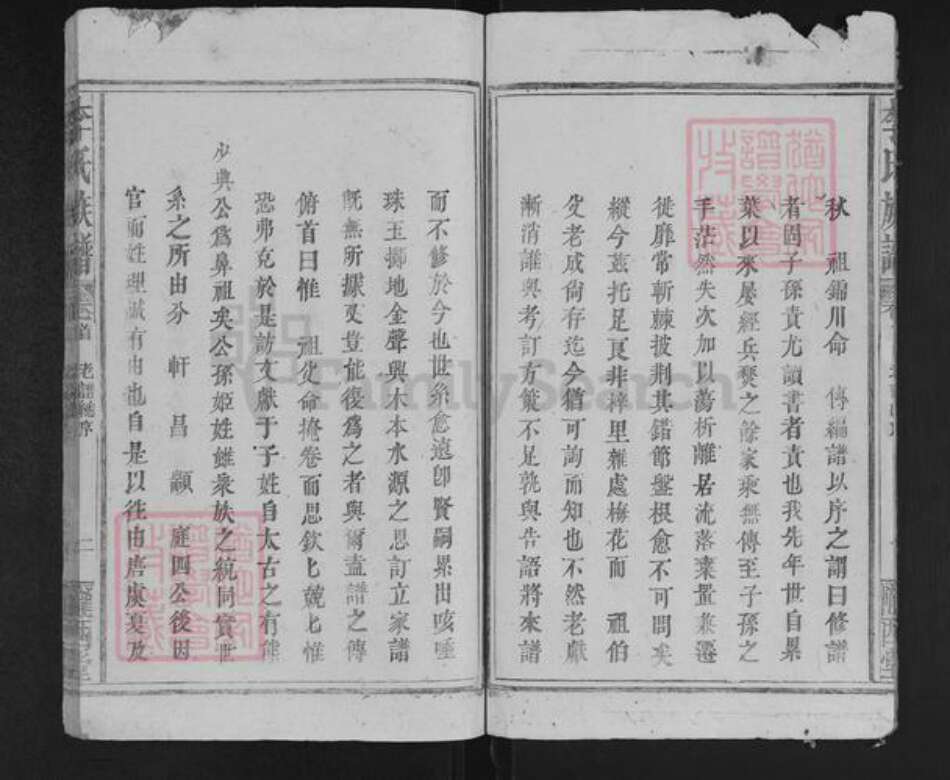 秋　祖錦川命　傳編譜以序之謂曰修譜
者固子孫責尤讀書者責也我先年世自累
葉以來屡經兵燹之餘家乘無傳至子孫之
手茫然失次加以蕩析離居流落棄置兼遷
徙靡常斬棘披荆其錯節盤根愈不可問矣
縱今茲托足頁非梓里雜處梅花而　祖伯
父老成尙存迄今猶可詢而知也不然老獻
漸消誰與考訂方策不足孰與告語將來譜
而不修於今也世系愈遠卽賢嗣累出咳唾
珠玉擲地金聲興木本水源之思訂立家譜
旣無所據又豈能復爲之者與爾盍譜之傳
俯首曰惟　祖父命掩卷而思欽匕兢匕惟
恐弗克於是訪文獻于子姓自太古之有熊
少典公爲鼻祖矣公孫姬姓雖衆族之統同實世
系之所由分　軒　昌　顓　庭四公後因
官而姓理誠有由也自是以徃由唐虞夏及
李氏族譜
老譜總序
二
隴西堂
FamilySearch